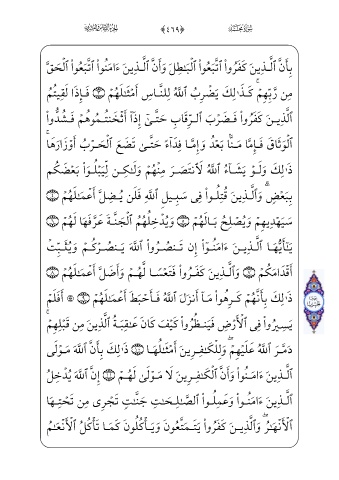 سورة محمد ﴿٤٦٩﴾ الجزء السادس والعشرون
بِأَنَّ ٱلَّذِينَ كَفَرُواْ ٱتَّبَعُواْ ٱلْبَٰطِلَ وَأَنَّ ٱلَّذِينَ ءَامَنُواْ ٱتَّبَعُواْ ٱلْحَقَّ
مِن رَّبِّهِمْ ۚ كَذَٰلِكَ يَضْرِبُ ٱللَّهُ لِلنَّاسِ أَمْثَٰلَهُمْ فَإِذَا لَقِيتُمُ
ٱلَّذِينَ كَفَرُواْ فَضَرْبَ ٱلرِّقَابِ حَتَّىٰٓ إِذَآ أَثْخَنتُمُوهُمْ فَشُدُّواْ
ٱلْوَثَاقَ فَإِمَّا مَنًّۢا بَعْدُ وَإِمَّا فِدَآءً حَتَّىٰ تَضَعَ ٱلْحَرْبُ أَوْزَارَهَا ۚ
ذَٰلِكَ وَلَوْ يَشَآءُ ٱللَّهُ لَٱنتَصَرَ مِنْهُمْ وَلَٰكِن لِّيَبْلُوَاْ بَعْضَكُم
بِبَعْضٍ ۗ وَٱلَّذِينَ قُتِلُواْ فِى سَبِيلِ ٱللَّهِ فَلَن يُضِلَّ أَعْمَٰلَهُمْ
سَيَهْدِيهِمْ وَيُصْلِحُ بَالَهُمْ وَيُدْخِلُهُمُ ٱلْجَنَّةَ عَرَّفَهَا لَهُمْ
يَٰٓأَيُّهَا ٱلَّذِينَ ءَامَنُوٓاْ إِن تَنصُرُواْ ٱللَّهَ يَنصُرْكُمْ وَيُثَبِّتْ
أَقْدَامَكُمْ وَٱلَّذِينَ كَفَرُواْ فَتَعْسًا لَّهُمْ وَأَضَلَّ أَعْمَٰلَهُمْ
ذَٰلِكَ بِأَنَّهُمْ كَرِهُواْ مَآ أَنزَلَ ٱللَّهُ فَأَحْبَطَ أَعْمَٰلَهُمْ ۞ أَفَلَمْ
يَسِيرُواْ فِى ٱلْأَرْضِ فَيَنظُرُواْ كَيْفَ كَانَ عَٰقِبَةُ ٱلَّذِينَ مِن قَبْلِهِمْ ۚ
دَمَّرَ ٱللَّهُ عَلَيْهِمْ ۖ وَلِلْكَٰفِرِينَ أَمْثَٰلُهَا ذَٰلِكَ بِأَنَّ ٱللَّهَ مَوْلَى
ٱلَّذِينَ ءَامَنُواْ وَأَنَّ ٱلْكَٰفِرِينَ لَا مَوْلَىٰ لَهُمْ إِنَّ ٱللَّهَ يُدْخِلُ
ٱلَّذِينَ ءَامَنُواْ وَعَمِلُواْ ٱلصَّٰلِحَٰتِ جَنَّٰتٍ تَجْرِى مِن تَحْتِهَا
ٱلْأَنْهَٰرُ ۖ وَٱلَّذِينَ كَفَرُواْ يَتَمَتَّعُونَ وَيَأْكُلُونَ كَمَا تَأْكُلُ ٱلْأَنْعَٰمُ